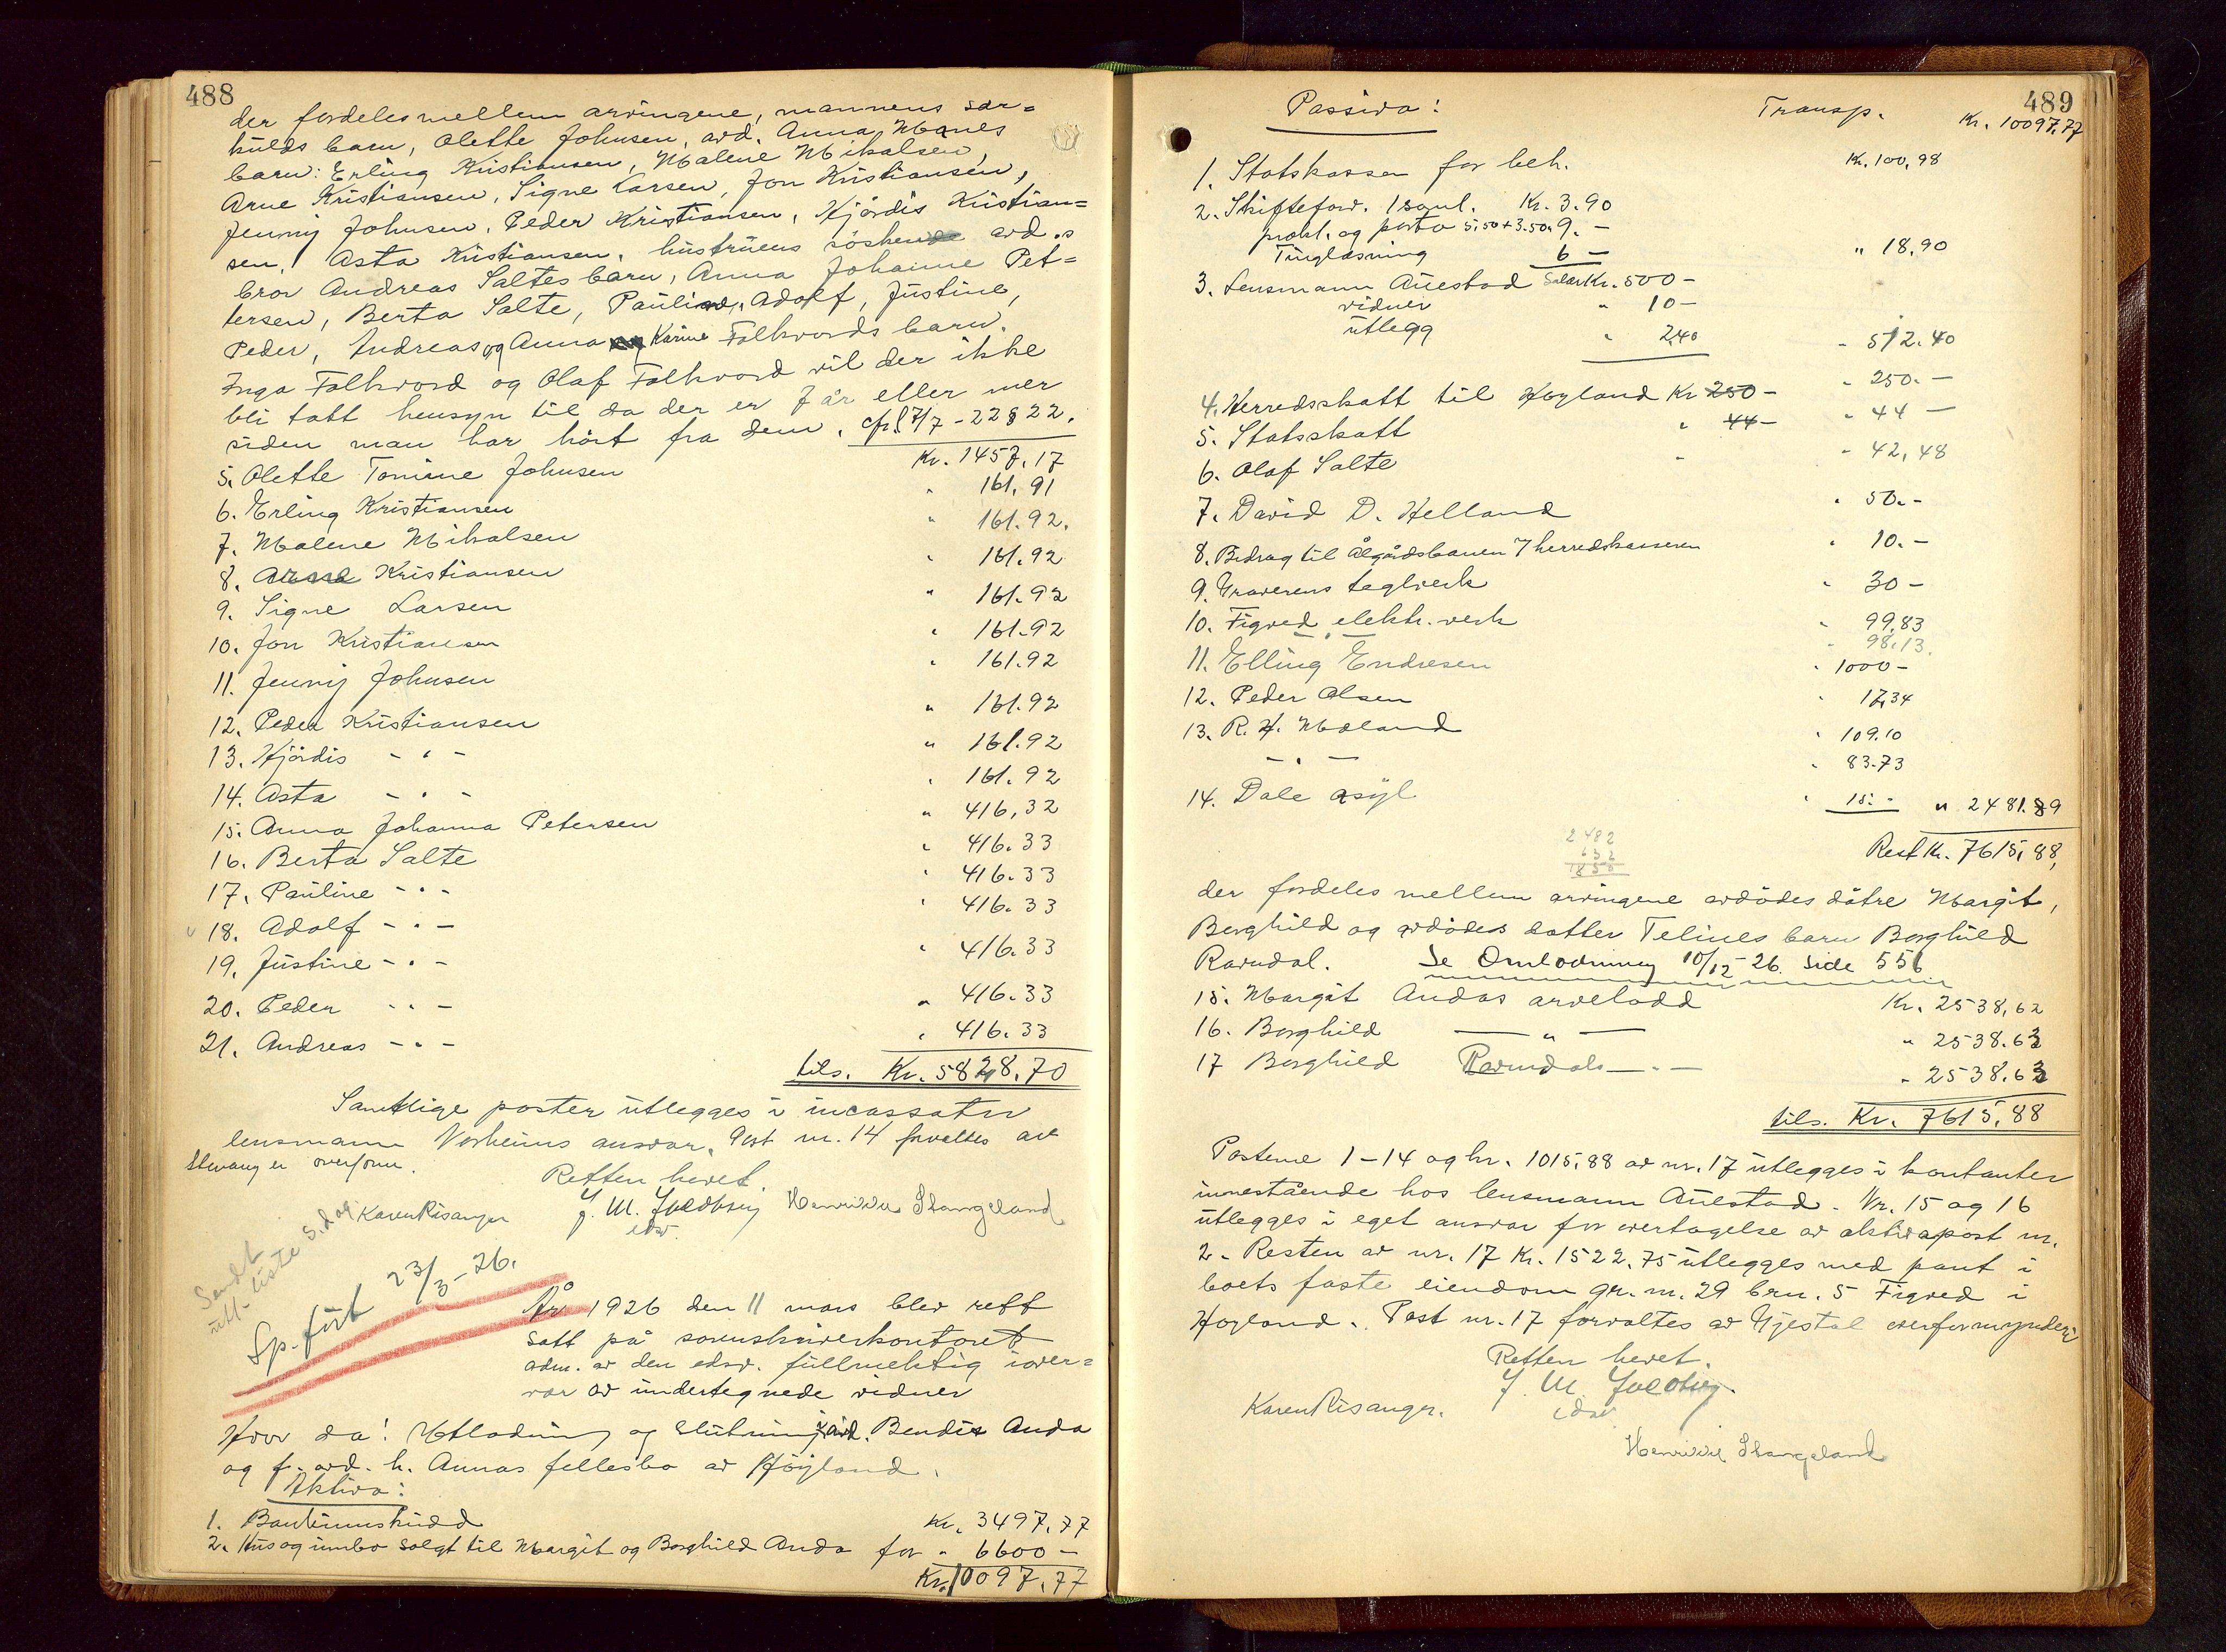 488
der fordeles mellem arvingene, mannens sær=
kulds barn, Olette Johnsen, avd. Anna Manes
barn: Erling Kristiansen, Malene Mikalsen,
Arne Kristiansen, Signe Larsen, Jon Kristiansen,
Jenny Johnsen, Peder Kristiansen, Hjördis Kristian=
sen, Asta Kristiansen, hustruens söskende avd.s
bror Andreas Saltes barn, Anna Johanne Pet=
tersen, Berta Salte, Pauline, Adolf, Justine,
Peder, Andreas og Anna Karine Folkvords barn.
Inga Folkvord og Olaf Folkvord vil der ikke
bli tatt hensyn til da der er 7 år eller mer
siden man har hört fra dem, cfr. l 7/7-22 § 22.
5. Olette Tomine Johnsen Kr. 1457.17
6. Erling Kristiansen " 161.91
7. Malene Mikalsen " 161.92.
8. Arne Kristiansen " 161.92
9. Signe Larsen " 161.92
10. Jon Kristiansen " 161.92
11. Jenny Johnsen " 161.92
12. Peder Kristiansen " 161.92
13. Hjördis - " - " 161.92
14. Asta - " - " 161.92
15. Anna Johanna Petersen " 416,32
16. Berta Salte " 416.33
17. Pauline - " - " 416.33
18. Adolf - " - " 416.33
19. Justine - " - " 416.33
20. Peder - " - " 416.33
21. Andreas - " - " 416.33
tils. Kr. 5828.70
Samtlige poster utlegges i incassator
lensmann Norheims ansvar. Post nr. 14 forvaltes av
Stavang er overform.
Retten hevet.
Karen Risanger Henrikke Stangeland
edsv.
Sendt
utl-liste s.dag
Sp. fört 23/3-26.
År 1926 den 11 mars blev rett
satt på sorenskriverkontoret
adm. av den edsv. fullmektig i over=
vær av undertegnede vidner
Hvor da: Utlodning og slutning i avd. Bendix Anda
og f. avd. h. Annas fellesbo av Höyland.
Aktiva:
1. Bankinnskudd Kr. 3497.77
2. Hus og innbo solgt til Margit og Borghild Anda for " 6600 -
Kr. 10097.77
489
Passiva: Transp. Kr. 10097.77
1. Statskassen for beh. Kr. 100,98
2. Skifteforr. 1 saml. Kr. 3.90
prokl. og porto 5.50+3.50 " 9. -
Tinglæsning 6 - " 18.90
3. Lensmann Auestad Salær Kr. 500 -
vidner " 10 -
utlegg " 2,40 " 512.40
4. Herredsskatt til Høyland Kr 250 - " 250. -
5. Statsskatt " 44 - " 44 -
6. Olaf Salte " " 42,48
7. David D. Helland " 50. -
8. Bidrag til Ålgårdsbanen 7 herredskassereren " 10. -
9. Graverens teglverk " 30 -
10. Figved elektr. verk " 99,83
- " - " 98,13.
11. Elling Endresen " 1000 -
12. Peder Olsen " 17,34
13. R. H. Mæland " 109.10
- " - " 83.73
14. Dale asyl " 15. - " 2481.89
2482
632
1850
Rest Kr. 7615,88,
der fordeles mellem arvingene avdödes dötre Margit,
Borghild og avdödes datter Telines barn Borghild
Ravndal. Se Omlodning 10/12-26. side 556
15. Margit Andas arvelodd Kr. 2538,62
16. Borghild — " — " 2538.63
17 Borghild Ravndals — " — " 2538.63
tils. Kr. 7615,88
Postene 1-14 og kr. 1015.88 av nr. 17 utlegges i kontanter
innestående hos lensmann Auestad. Nr. 15 og 16
utlegges i eget ansvar for overtagelse av aktivapost nr.
2. Resten av nr. 17 Kr. 1522.75 utlegges med pant i
boets faste eiendom gr. nr. 29 brn. 5 Figved i
Høyland. Post nr. 17 forvaltes av Gjestal overformynderi
Retten hevet.
Karen Risanger.
edsv
Henrikke Stangeland